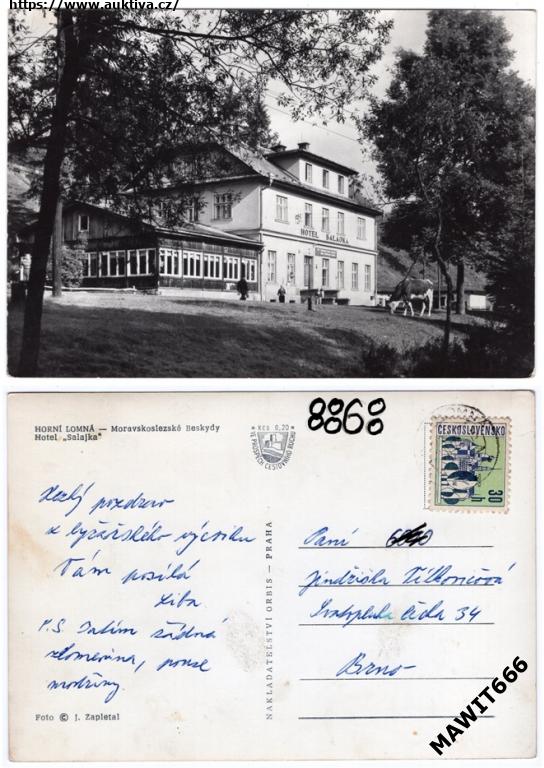 https://www.auktiva.cz/
HOTEL SALAJKA
HORNÍ LOMNÁ — Moravskoslezské Beskydy
Hotel „Salajka"
* Kčs 0,20 *
VE PROSPĚCH CESTOVNÍHO RUCHU
8868
ČESKOSLOVENSKO
30h
Hezký pozdrav
z lyžařského výcviku
Vám posílá
Liba
P.S. Zatím žádná
zlomenina, pouze
modřiny.
Foto © J. Zapletal
NAKLADATELSTVÍ ORBIS — PRAHA
Paní
Jindřiška
Svatopluka Čecha 34
Brno
MAWIT666